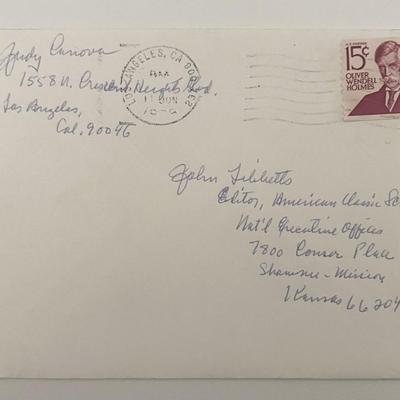 Judy Canova
1558 N. Crescent Heights Blvd.
Los Angeles,
Cal. 90046
LOS ANGELES, CA
AM
11 JUN
15¢
OLIVER
WENDELL
HOLMES
John Tibbetts
Editor, American Classic Sc
Nat'l Executive Offices
7800 Conser Place
Shawnee-Mission
Kansas 66204